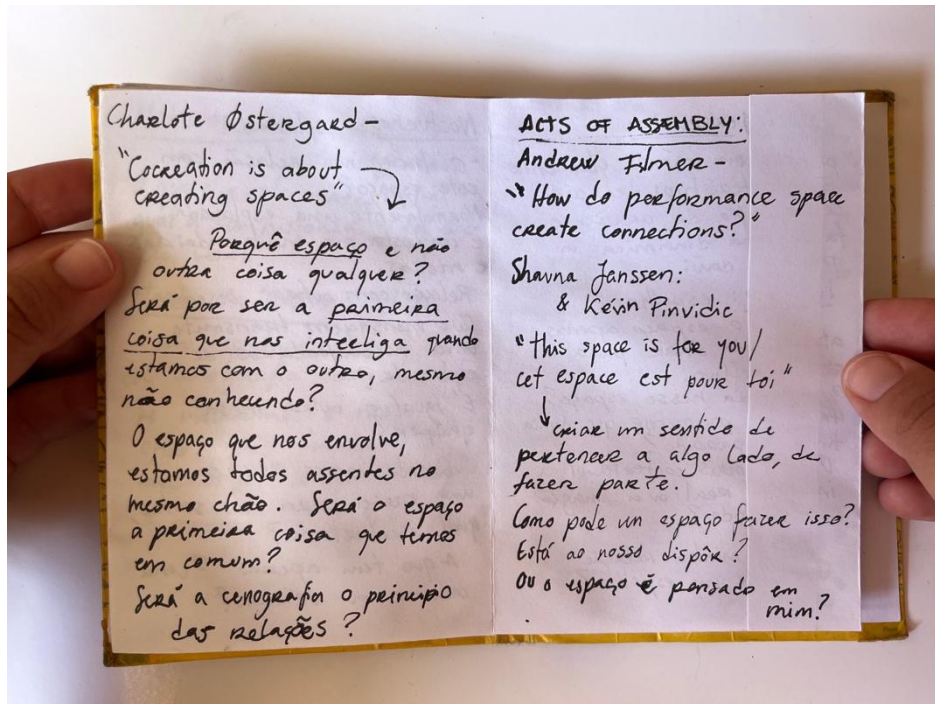 Charlote Østergard -
"Cocreation is about
creating spaces"
Porquê espaço e não
outra coisa qualquer?
Será por ser a primeira
coisa que nos interliga quando
estamos com o outro, mesmo
não conhecendo?
O espaço que nos envolve,
estamos todos assentes no
mesmo chão. Será o espaço
a primeira coisa que temos
em comum?
Será a cenografia o principio
das relações?
ACTS OF ASSEMBLY:
Andrew Filmer -
"How do performance space
create connections?"
Shauna Janssen:
& Kévin Pinvidic
"this space is for you/
cet espace est pour toi"
criar um sentido de
pertencer a algo lado, de
fazer parte.
Como pode un espaço fazer isso?
Está ao nosso dispôr?
Ou o espaço é pensado em
mim?